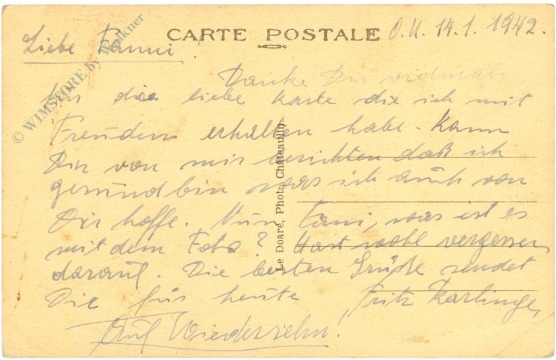 CARTE POSTALE
O.U. 14.1.1942.
Liebe Fanni!
Danke Dir vielmals
für die liebe Karte die ich mit
Freuden erhalten habe. Kann
Dir von mir berichten daß ich
gesund bin was ich auch von
Dir hoffe. Nun Fani, was ist es
mit dem Foto? Hast wohl vergessen
darauf. Die besten Grüße sendet
Die für heute Fritz
Auf Wiedersehn!
Le Doaré, Photo, Chateaulin
© WIMSTORE by Falkner